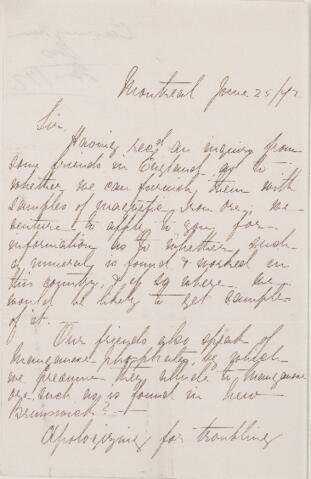 Montreal June 25/72
Sir,
Having recd an inquiry from
some friends in England as to
whether we can furnish them with
samples of magnetic Iron ore, we
venture to apply to you for
information as to whether such
a mineral is found & worked in
this country, & if so where we
would be likely to get samples
of it.
Our friends also speak of
manganese phosphates, by which
we presume they allude to manganese
ore such as is found in New
Brunswick? —
Apologizing for troubling